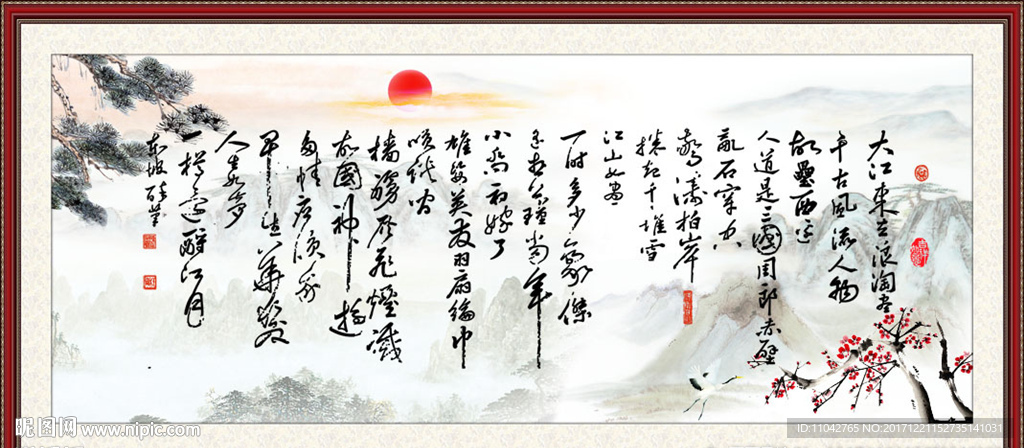 大江東去浪淘盡
千古風流人物
故壘西邊
人道是三國周郎赤壁
亂石穿空
驚濤拍岸
捲起千堆雪
江山如畫
一時多少豪傑
遙想公瑾當年
小喬初嫁了
雄姿英發羽扇綸巾
談笑間
檣櫓灰飛煙滅
故國神遊
多情應笑我
早生華髮
人生如夢
一樽還酹江月
東坡
昵图网 www.nipic.com
ID:11042765 NO:20171221152735141031